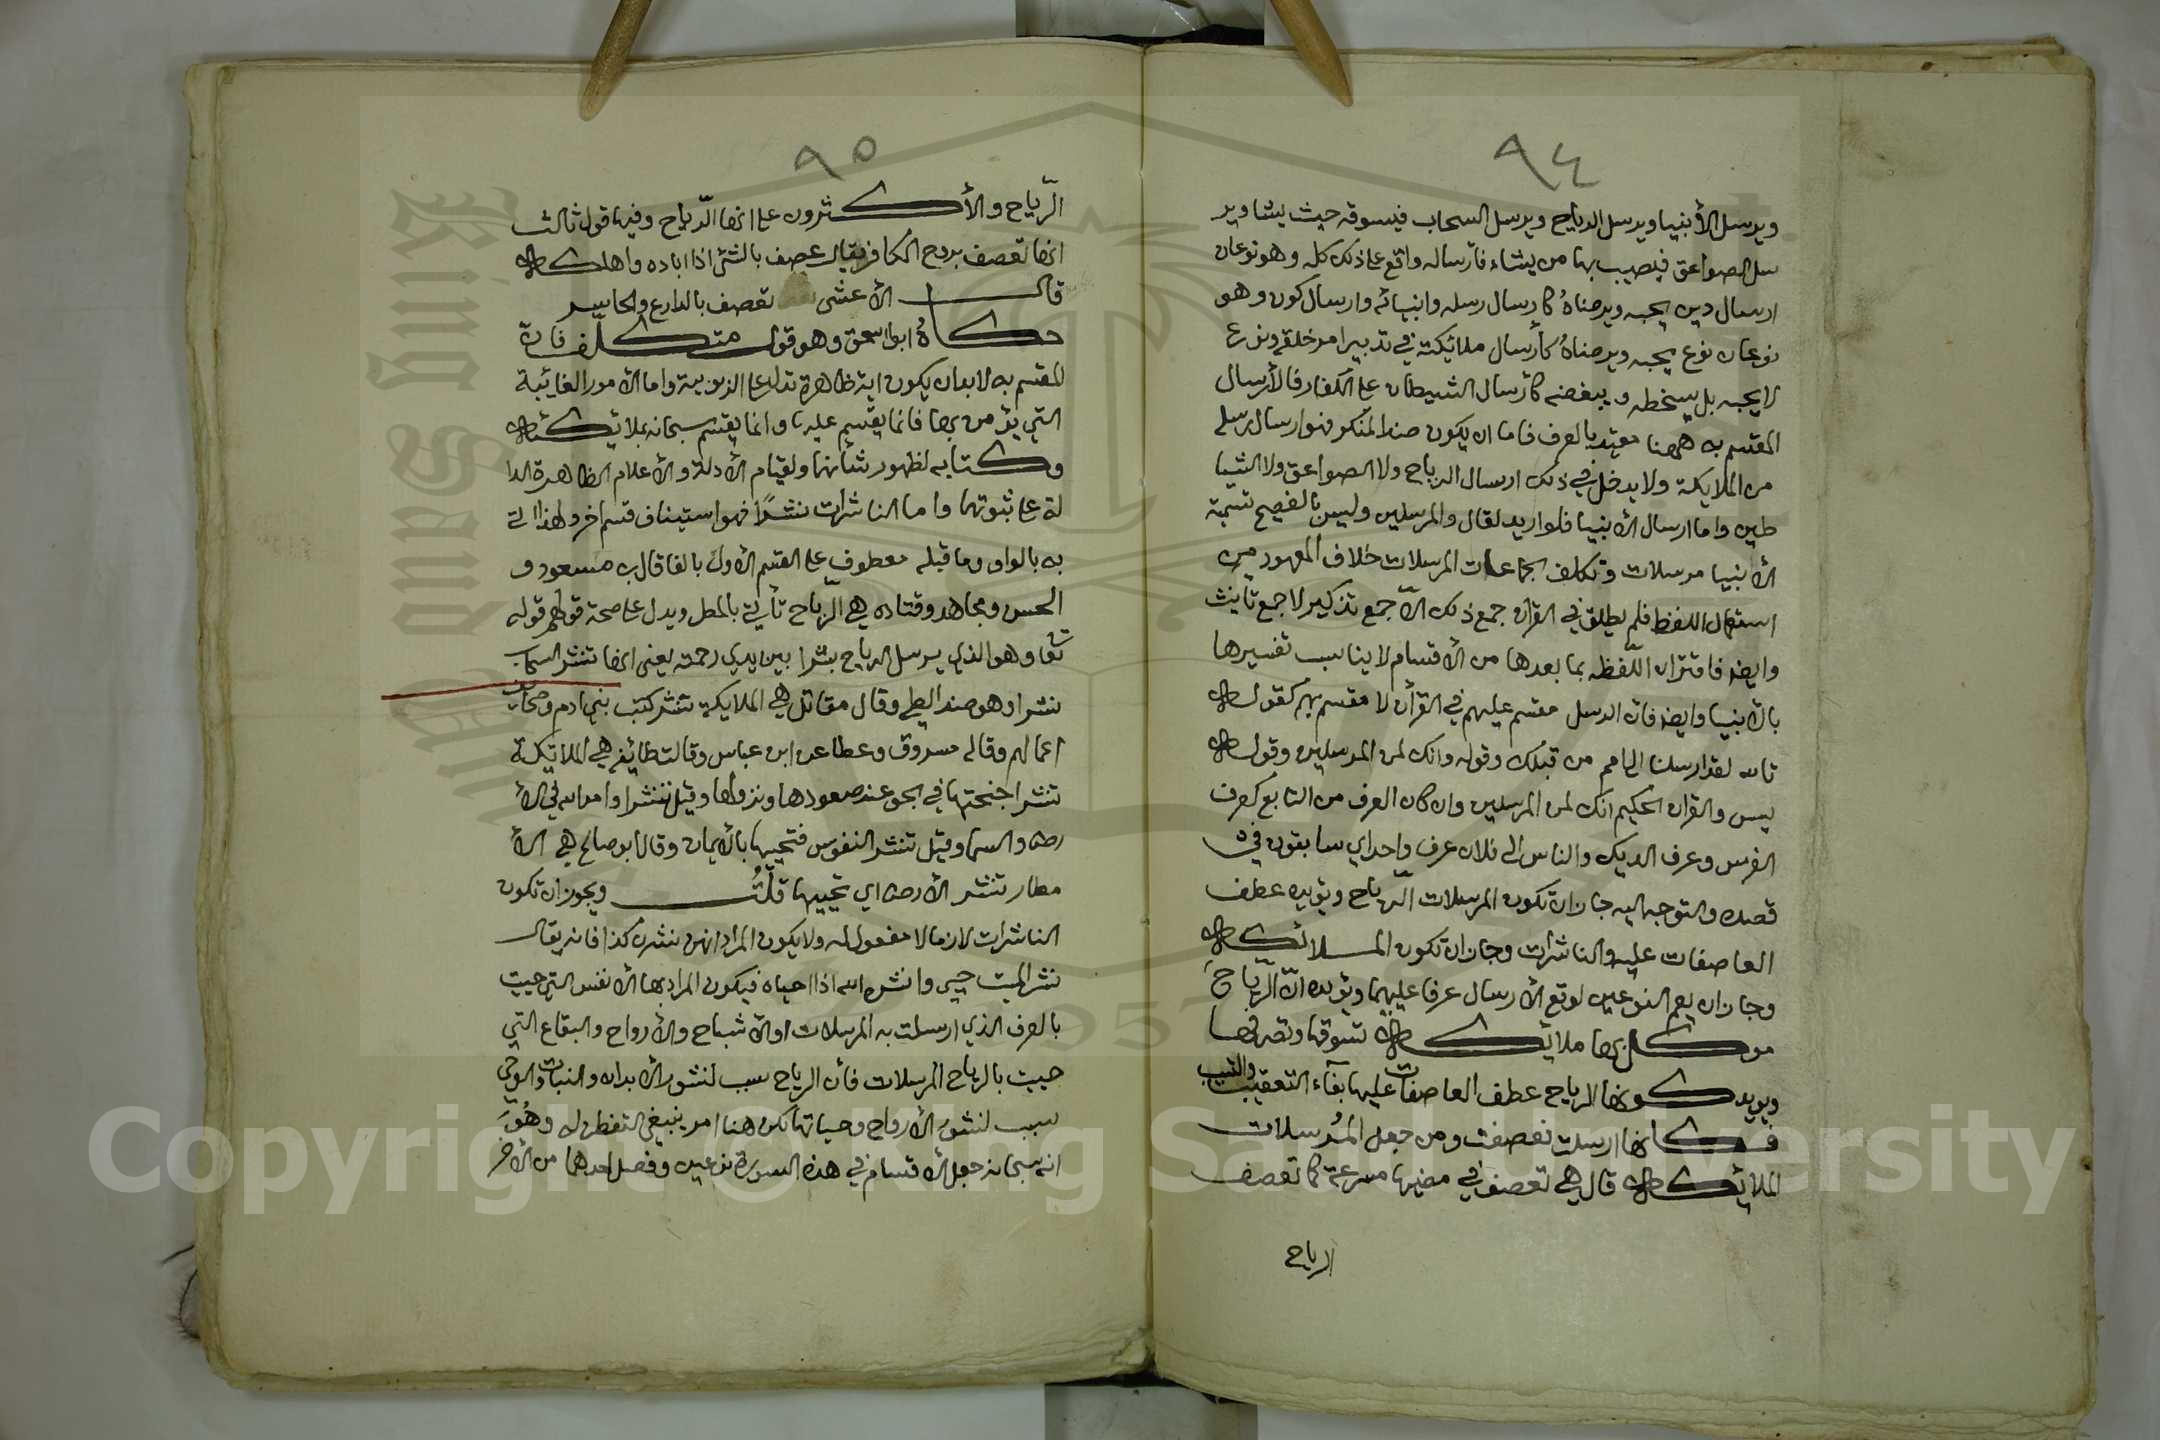 ٩٤
ويرسل الأنبيا ويرسل الرياح ويرسل السحاب فيسوقه حيث يشا وير
سل الصواعق فيصيب بها من يشاء فأرساله واقع على ذلك كله وهو نوعان
ارسال دين يحبه ويرضاهُ كارسال رسله وانبيائه وارسال كون وهو
نوعان نوع يحبه ويرضاهُ كأرسال ملائيكته في تدبير امر خلقه ونوع
لا يحبه بل يسخطه ويبغضه كأرسال الشيطان على الكفار فالأرسال
المقسم به ههنا مقيد بالعرف فاما ان يكون ضد المنكر فهو ارسال رسله
من الملايكة ولا يدخل في ذلك ارسال الرياح ولا الصواعق ولا الشيا
طين واما ارسال الأنبيا فلو اريد لقال والمرسلين وليس بالفصيح تسمية
الأنبيا مرسلات وتكلف الجماعات المرسلات خلاف المعهود من
استعمال اللفظ فلم يطلق في القرآن جمع ذلك الّا جمع تذكير لا جمع تأنيث
وايضا فاقتران اللّفظه بما بعدها من الأقسام لا يناسب تفسيرها
بالأنبيا وايضا فان الرسل مقسم عليهم في القرأن لا مقسم بهم كقوله
تالله لقد ارسلنا الى امم من قبلك وقوله وانك لمن المرسلين وقوله
يس والقران الحكيم انك لمن المرسلين وان كان العرف من التابع كعرف
الفرس وعرف الديك والناس الى فلان عرف واحد اي سابقون في
قصده والتوجه اليه جاز ان تكون المرسلات الّرياح ويؤيده عطف
العاصفات عليه والناشرات وجاز ان تكون المسلائكه
وجاز ان يعم النوعين لوقع الأرسال عرفا عليهما ويؤيده انّ الّرياحَ
موكل بها ملائكه تسوقها وتصرفها
ويؤيد كونها الرياح عطف العاصفات عليها بفآء التعقيب والتسبب
فكانها ارسلت فعصفت ومن جعل المُرسلات
الملائكه قال هي تعصف في مضيها مسرعة كما تعصف
الرياح
٩٥
الّرياح والأكثرون على انها الّرياح وفيها قول ثالث
انها تعصف بروح الكافر يقال عصف بالشئ اذا اباده واهلكه
قال الأعشى تعصف بالدارع والحاسر
حكاهُ ابو اسحق وهو قول متكلّف فان
المقسم به لا بد ان يكون اية ظاهرة تدل على الربوبية واما الأمور الغائبة
التي يؤمن بها فانما يقسم عليها وانما يقسم سبحانه بملائكته
وكتابه لظهور شأنهما ولقيام الأدلة والأعلام الظاهرة الدا
لة على ثبوتهما واما الناشرات نشرًا فهو استيناف قسم آخر ولهذا اتى
به بالواو وما قبله معطوف على القسم الأول بالفا قال بن مسعود و
الحسن ومجاهد وقتاده هي الّرياح تأتي بالمطر ويدل على صحة قولهم قوله
تعا وهو الذي يرسل الرياح بشرا بين يدي رحمته يعني انها تنشر السحاب
نشرا وهو ضد الطي وقال مقاتل هي الملايكه تنشر كتب بني ادم وصحايف
اعمالهم وقاله مسروق وعطا عن ابن عباس وقالت طائفه هي الملائيكة
تنشر اجنحتها في الجو عند صعودها ونزولها وقيل تنشر اوامر الله في الأ
رض والسما وقيل تنشر النفوس فتحييها بالأيمان وقال ابو صالح هي الأ
مطار تنشر الأرض اي تحييها قلّتُ ويجوز ان تكون
الناشرات لازما لا مفعول له ولا يكون المراد انهن نشرن كذا فانه يقال
نشر الميت حيي وانشره الله اذا احياه فيكون المراد بها الأنفس التي حييت
بالعرف الذي ارسلت به المرسلات او الأشباح والأرواح والبقاع التي
حييت بالرياح المرسلات فأن الرياح سبب لنشور الأبدان والنبات والوحي
سبب لنشور الأرواح وحياتها لكن هنا امر ينبغي التفطن له وهُوَ
انه سبحانه جعل الأقسام في هذه السورة نوعين وفصل احدهما من الأخر
Copyright © King Saud University
King Saud University
1957